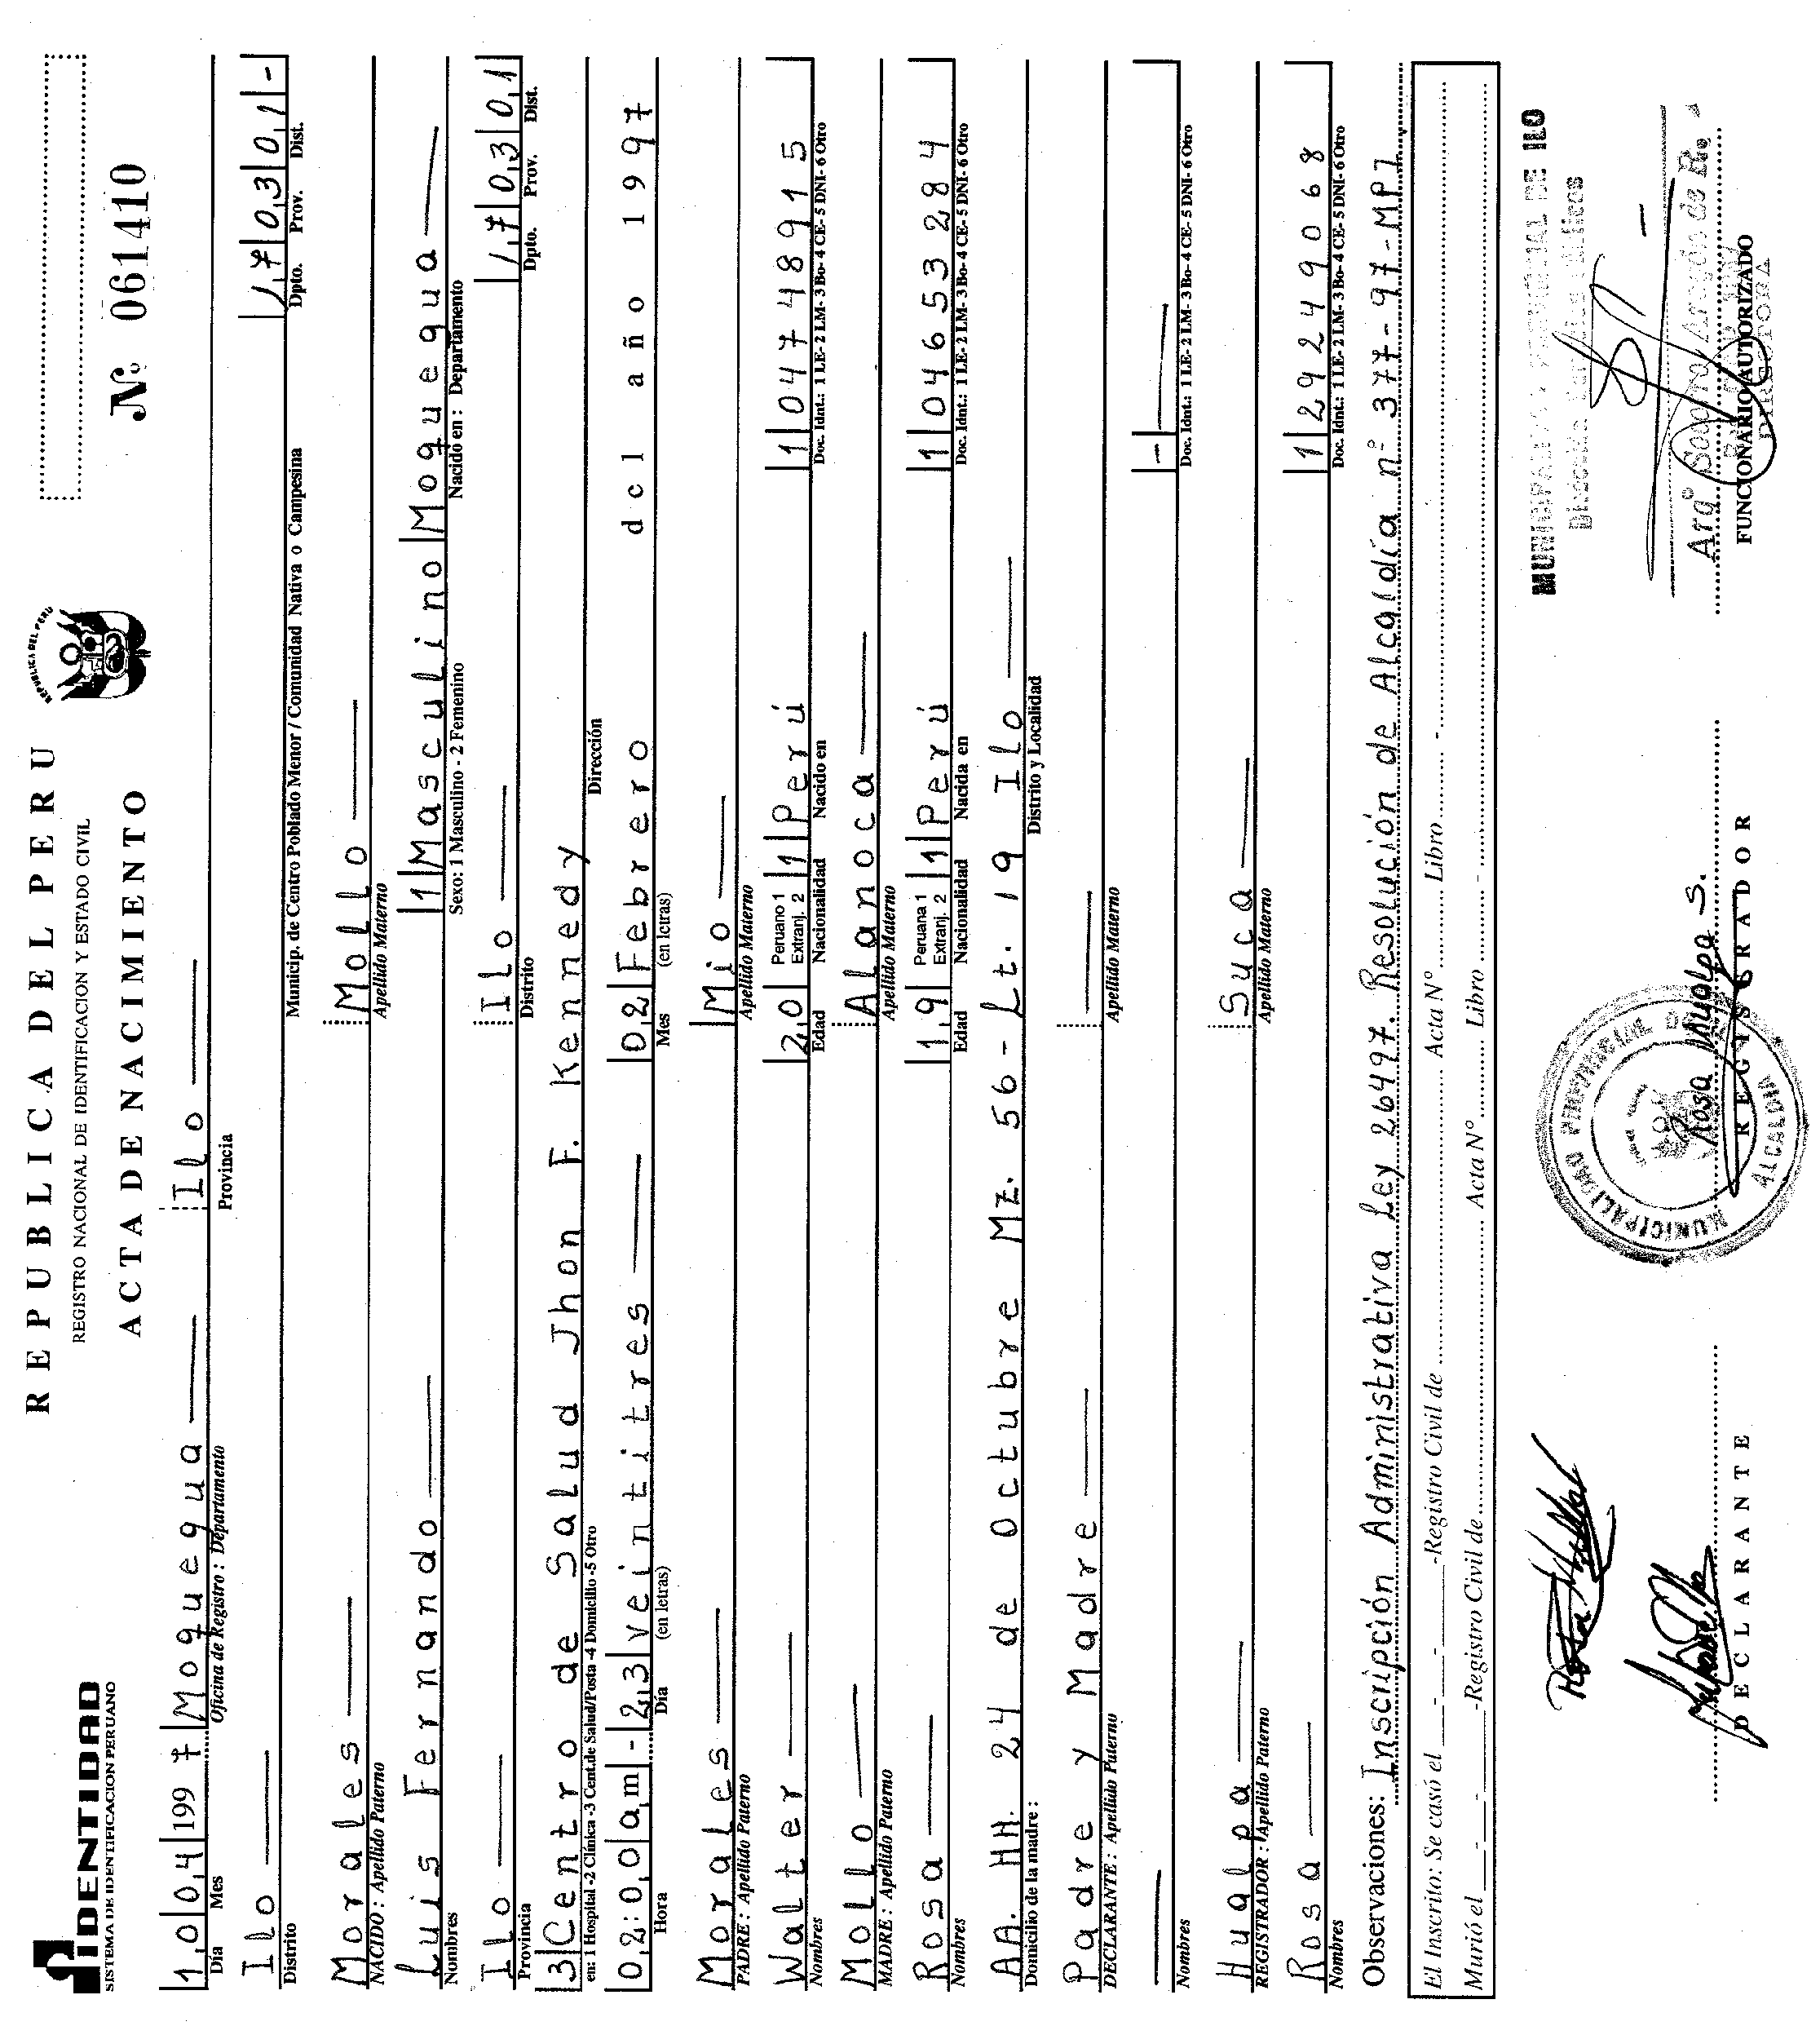 REPUBLICA DEL PERU
REGISTRO NACIONAL DE IDENTIFICACION Y ESTADO CIVIL
ACTA DE NACIMIENTO
IDENTIDAD
SISTEMA DE IDENTIFICACION PERUANO
REPUBLICA DEL PERU
Nº 061410
10 04 1997 Moquegua Ilo
Día Mes Oficina de Registro : Departamento Provincia
Ilo 17 03 01 -
Distrito Municip. de Centro Poblado Menor / Comunidad Nativa o Campesina Dpto. Prov. Dist.
Morales Mollo
NACIDO : Apellido Paterno Apellido Materno
Luis Fernando 1 Masculino Moquegua
Nombres Sexo: 1 Masculino - 2 Femenino Nacido en : Departamento
Ilo Ilo 17 03 01
Provincia Distrito Dpto. Prov. Dist.
3 Centro de Salud Jhon F. Kennedy
en: 1 Hospital -2 Clínica -3 Cent.de Salud/Posta -4 Domicilio -5 Otro Dirección
02:00 am - 23 veintitres 02 Febrero del año 1997
Hora Día (en letras) Mes (en letras)
Morales Mio
PADRE : Apellido Paterno Apellido Materno
Walter 20 Peruano 1 Extranj. 2 1 Perú 1 04748915
Nombres Edad Nacionalidad Nacido en Doc. Idnt.: 1 LE- 2 LM- 3 Bo- 4 CE- 5 DNI- 6 Otro
Mollo Alanoca
MADRE : Apellido Paterno Apellido Materno
Rosa 19 Peruana 1 Extranj. 2 1 Perú 1 04653284
Nombres Edad Nacionalidad Nacida en Doc. Idnt.: 1 LE- 2 LM- 3 Bo- 4 CE- 5 DNI- 6 Otro
AA. HH. 24 de Octubre Mz. 56-Lt. 19 Ilo
Domicilio de la madre : Distrito y Localidad
Padre y Madre
DECLARANTE : Apellido Paterno Apellido Materno
-
Nombres Doc. Idnt.: 1 LE- 2 LM- 3 Bo- 4 CE- 5 DNI- 6 Otro
Hualpa Suca
REGISTRADOR : Apellido Paterno Apellido Materno
Rosa 1 29249068
Nombres Doc. Idnt.: 1 LE- 2 LM- 3 Bo- 4 CE- 5 DNI- 6 Otro
Observaciones: Inscripción Administrativa Ley 26497 Resolución de Alcaldía nº 377-97-MPI
El Inscrito: Se casó el - - -Registro Civil de Acta Nº Libro -
Murió el - - -Registro Civil de Acta Nº Libro -
MUNICIPALIDAD PROVINCIAL DE ILO
MUNICIPALIDAD PROVINCIAL
ALCALDIA
Rosa Hualpa S.
Arqº Socorro Aragón de R.
DIRECTORA
DECLARANTE REGISTRADOR FUNCIONARIO AUTORIZADO